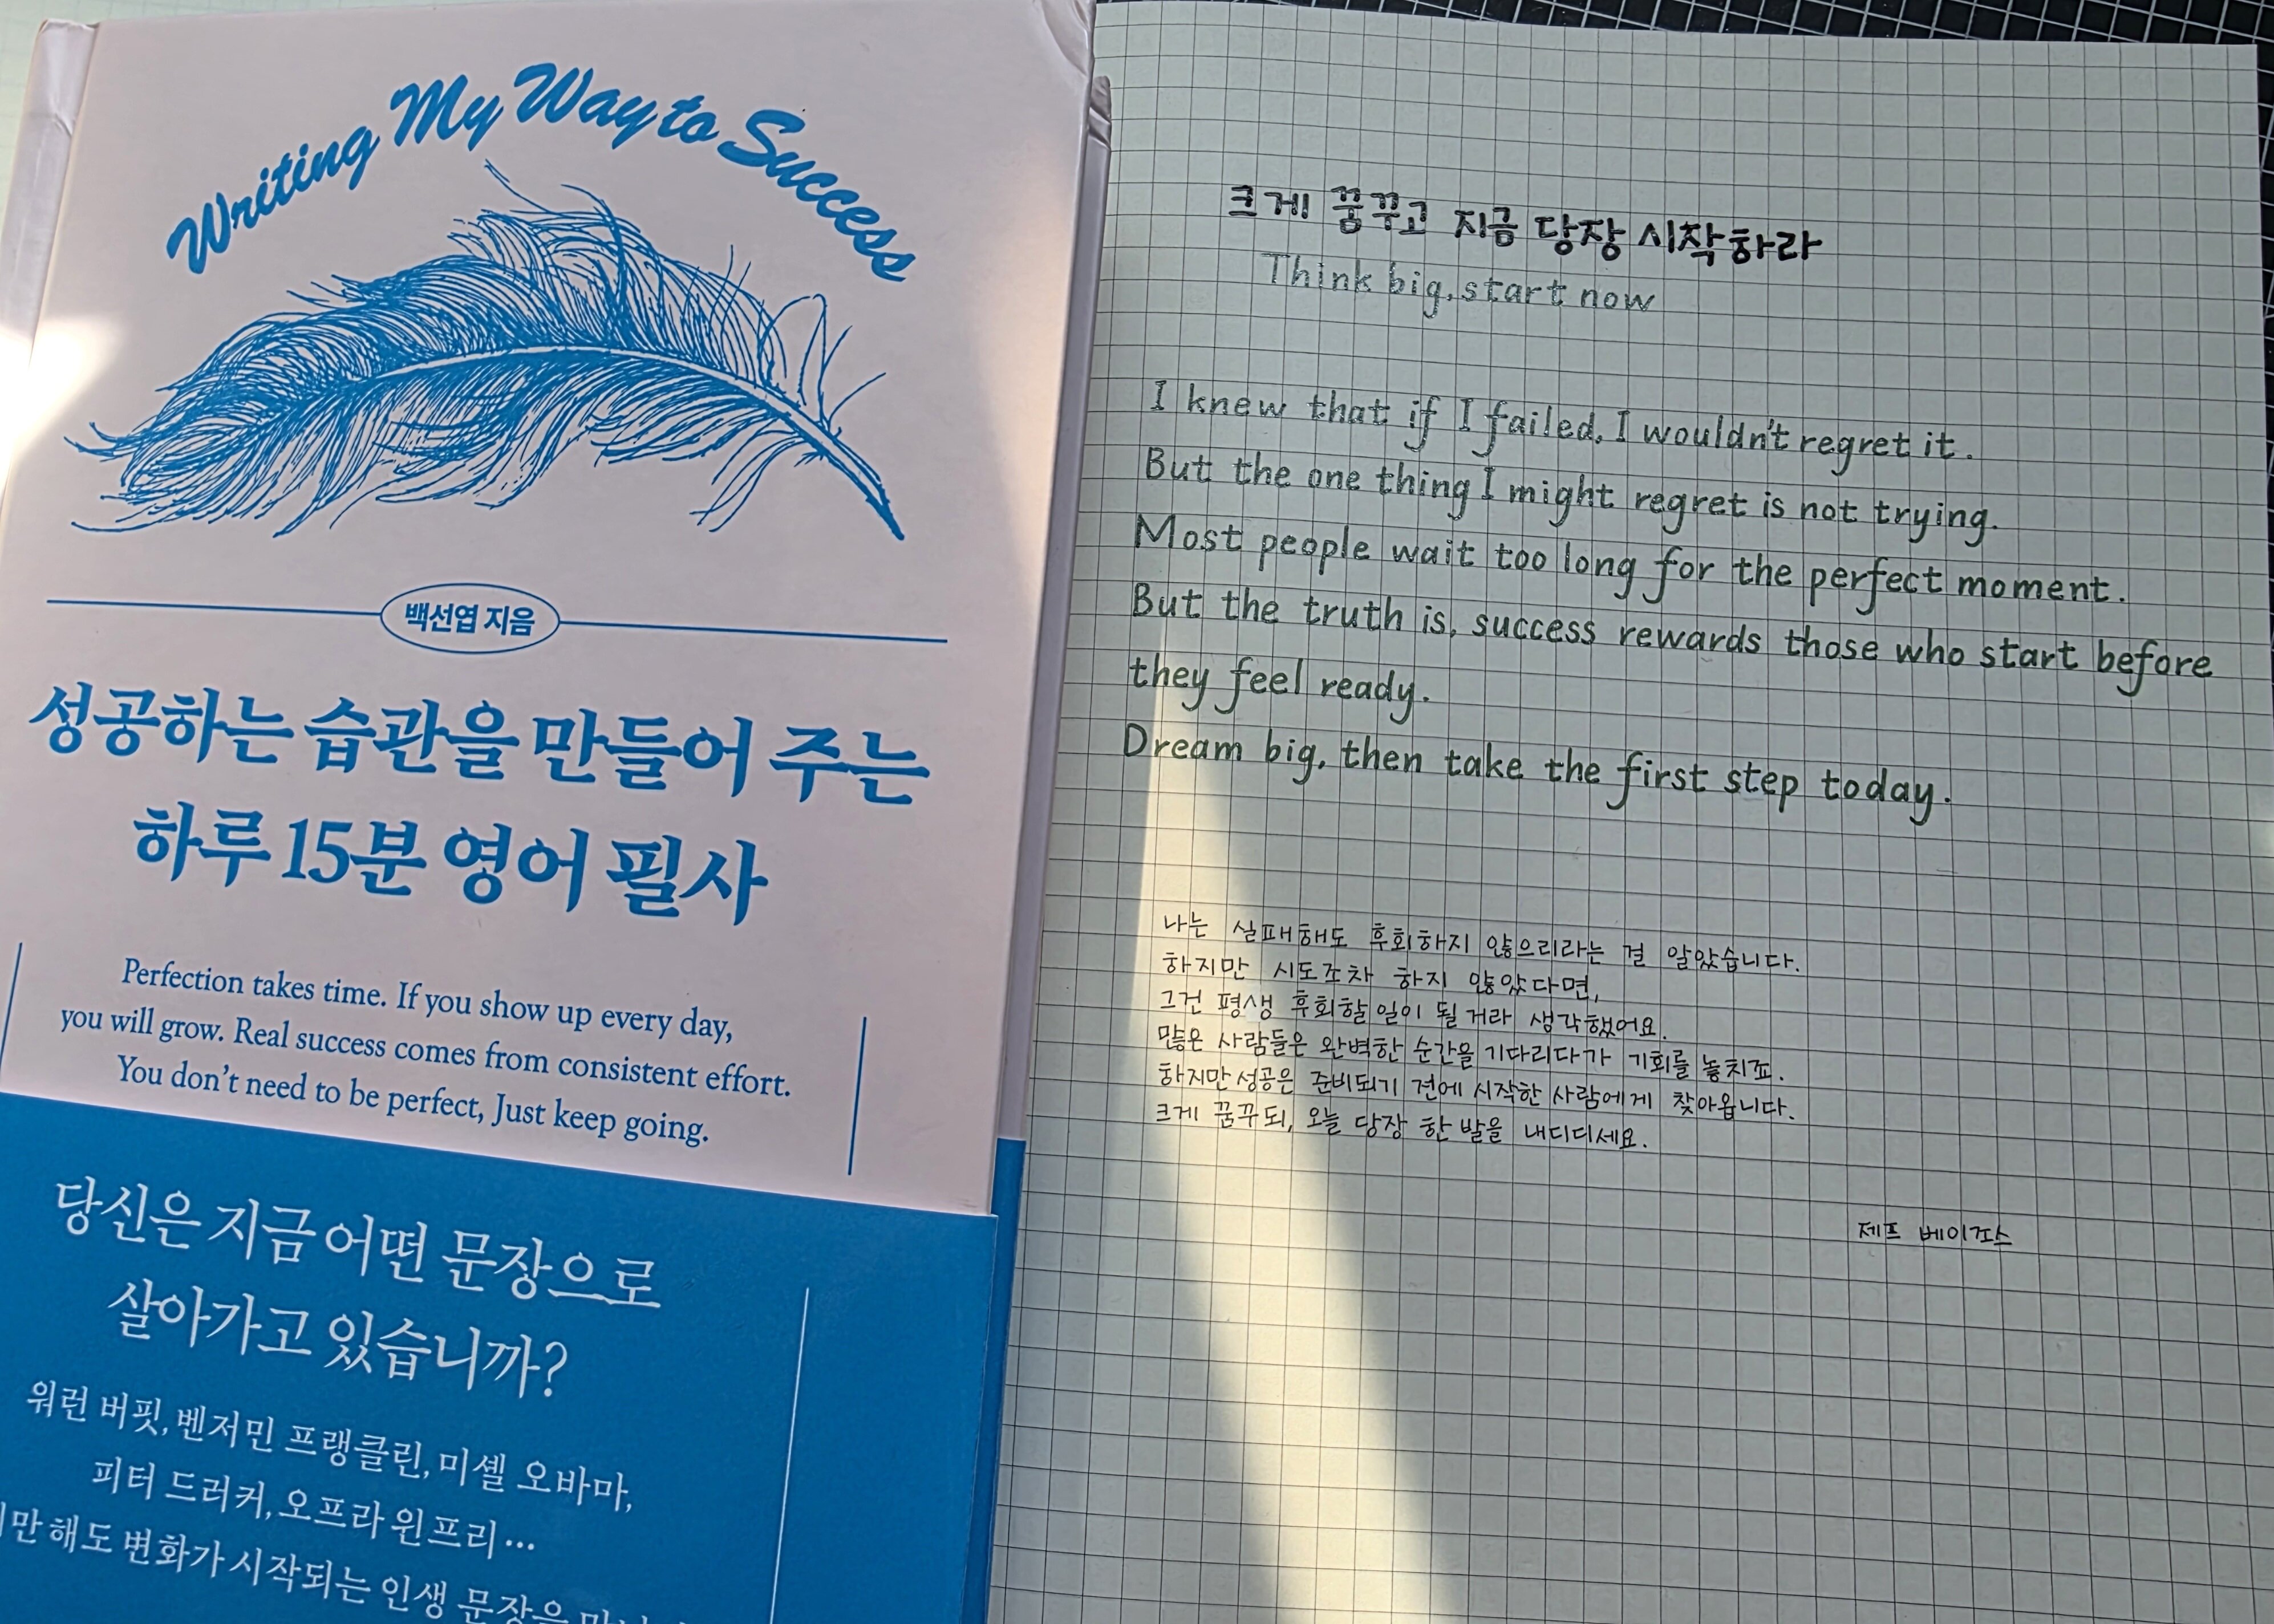 Writing My Way to Success
백선엽 지음
성공하는 습관을 만들어 주는
하루 15분 영어 필사
Perfection takes time. If you show up every day,
you will grow. Real success comes from consistent effort.
You don't need to be perfect, Just keep going.
당신은 지금 어떤 문장으로
살아가고 있습니까?
워런 버핏, 벤저민 프랭클린, 미셸 오바마,
피터 드러커, 오프라 윈프리···
만 해도 변화가 시작되는 인생 문장을
크게 꿈꾸고 지금 당장 시작하라
Think big, start now
I knew that if I failed, I wouldn't regret it.
But the one thing I might regret is not trying.
Most people wait too long for the perfect moment.
But the truth is, success rewards those who start before
they feel ready.
Dream big, then take the first step today.
나는 실패해도 후회하지 않으리라는 걸 알았습니다.
하지만 시도조차 하지 않았다면,
그건 평생 후회할 일이 될 거라 생각했어요.
많은 사람들은 완벽한 순간을 기다리다가 기회를 놓치죠.
하지만 성공은 준비되기 전에 시작한 사람에게 찾아옵니다.
크게 꿈꾸되, 오늘 당장 한 발을 내디디세요.
제프 베이조스